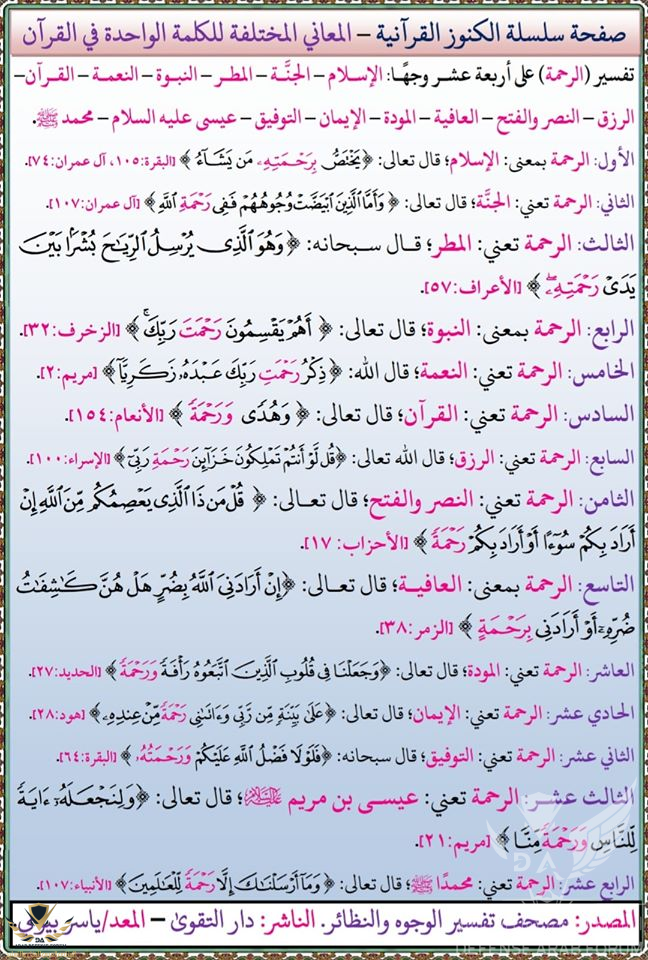 صفحة سلسلة الكنوز القرآنية – المعاني المختلفة للكلمة الواحدة في القرآن
تفسير (الرحمة) على أربعة عشر وجهًا: الإسلام – الجنَّة – المطر – النبوة – النعمة – القرآن–
الرزق – النصر والفتح – العافية – المودة – الإيمان – التوفيق – عيسى عليه السلام – محمد ﷺ.
الأول: الرحمة بمعنى: الإسلام؛ قال تعالى: ﴿يَخْتَصُّ بِرَحْمَتِهِۦ مَن يَشَآءُ﴾ [البقرة:١٠٥، آل عمران:٧٤].
الثاني: الرحمة تعني: الجنَّة؛ قال تعالى: ﴿وَأَمَّا ٱلَّذِينَ ٱبْيَضَّتْ وُجُوهُهُمْ فَفِى رَحْمَةِ ٱللَّهِ﴾ [آل عمران:١٠٧].
الثالث: الرحمة تعني: المطر؛ قال سبحانه: ﴿وَهُوَ ٱلَّذِى يُرْسِلُ ٱلرِّيَـٰحَ بُشْرًۢا بَيْنَ
يَدَىْ رَحْمَتِهِۦ﴾ [الأعراف:٥٧].
الرابع: الرحمة بمعنى: النبوة؛ قال تعالى: ﴿أَهُمْ يَقْسِمُونَ رَحْمَتَ رَبِّكَ ۚ﴾ [الزخرف:٣٢].
الخامس: الرحمة تعني: النعمة؛ قال الله: ﴿ذِكْرُ رَحْمَتِ رَبِّكَ عَبْدَهُۥ زَكَرِيَّآ﴾ [مريم:٢].
السادس: الرحمة تعني: القرآن؛ قال تعالى: ﴿وَهُدًى وَرَحْمَةً﴾ [الأنعام:١٥٤].
السابع: الرحمة تعني: الرزق؛ قال الله تعالى: ﴿قُل لَّوْ أَنتُمْ تَمْلِكُونَ خَزَآئِنَ رَحْمَةِ رَبِّىٓ﴾ [الإسراء:١٠٠].
الثامن: الرحمة تعني: النصر والفتح؛ قال تعالى: ﴿قُلْ مَن ذَا ٱلَّذِى يَعْصِمُكُم مِّنَ ٱللَّهِ إِنْ
أَرَادَ بِكُمْ سُوٓءًا أَوْ أَرَادَ بِكُمْ رَحْمَةً﴾ [الأحزاب: ١٧].
التاسع: الرحمة بمعنى: العافية؛ قال تعالى: ﴿إِنْ أَرَادَنِىَ ٱللَّهُ بِضُرٍّ هَلْ هُنَّ كَـٰشِفَـٰتُ
ضُرِّهِۦٓ أَوْ أَرَادَنِى بِرَحْمَةٍ﴾ [الزمر:٣٨].
العاشر: الرحمة تعني: المودة؛ قال تعالى: ﴿وَجَعَلْنَا فِى قُلُوبِ ٱلَّذِينَ ٱتَّبَعُوهُ رَأْفَةً وَرَحْمَةً﴾ [الحديد:٢٧].
الحادي عشر: الرحمة تعني: الإيمان؛ قال تعالى: ﴿عَلَىٰ بَيِّنَةٍ مِّن رَّبِّى وَءَاتَىٰنِى رَحْمَةً مِّنْ عِندِهِۦ﴾ [هود:٢٨].
الثاني عشر: الرحمة تعني: التوفيق؛ قال سبحانه: ﴿فَلَوْلَا فَضْلُ ٱللَّهِ عَلَيْكُمْ وَرَحْمَتُهُۥ﴾ [البقرة:٦٤].
الثالث عشر: الرحمة تعني: عيسى بن مريم عليه السلام؛ قال تعالى: ﴿وَلِنَجْعَلَهُۥٓ ءَايَةً
لِّلنَّاسِ وَرَحْمَةً مِّنَّا﴾ [مريم:٢١].
الرابع عشر: الرحمة تعني: محمدًا ﷺ؛ قال تعالى: ﴿وَمَآ أَرْسَلْنَـٰكَ إِلَّا رَحْمَةً لِّلْعَـٰلَمِينَ﴾ [الأنبياء:١٠٧].
المصدر: مصحف تفسير الوجوه والنظائر. الناشر: دار التقوى – المعد/ياسر بيومي
DA
DEFENSE ARAB FORUM